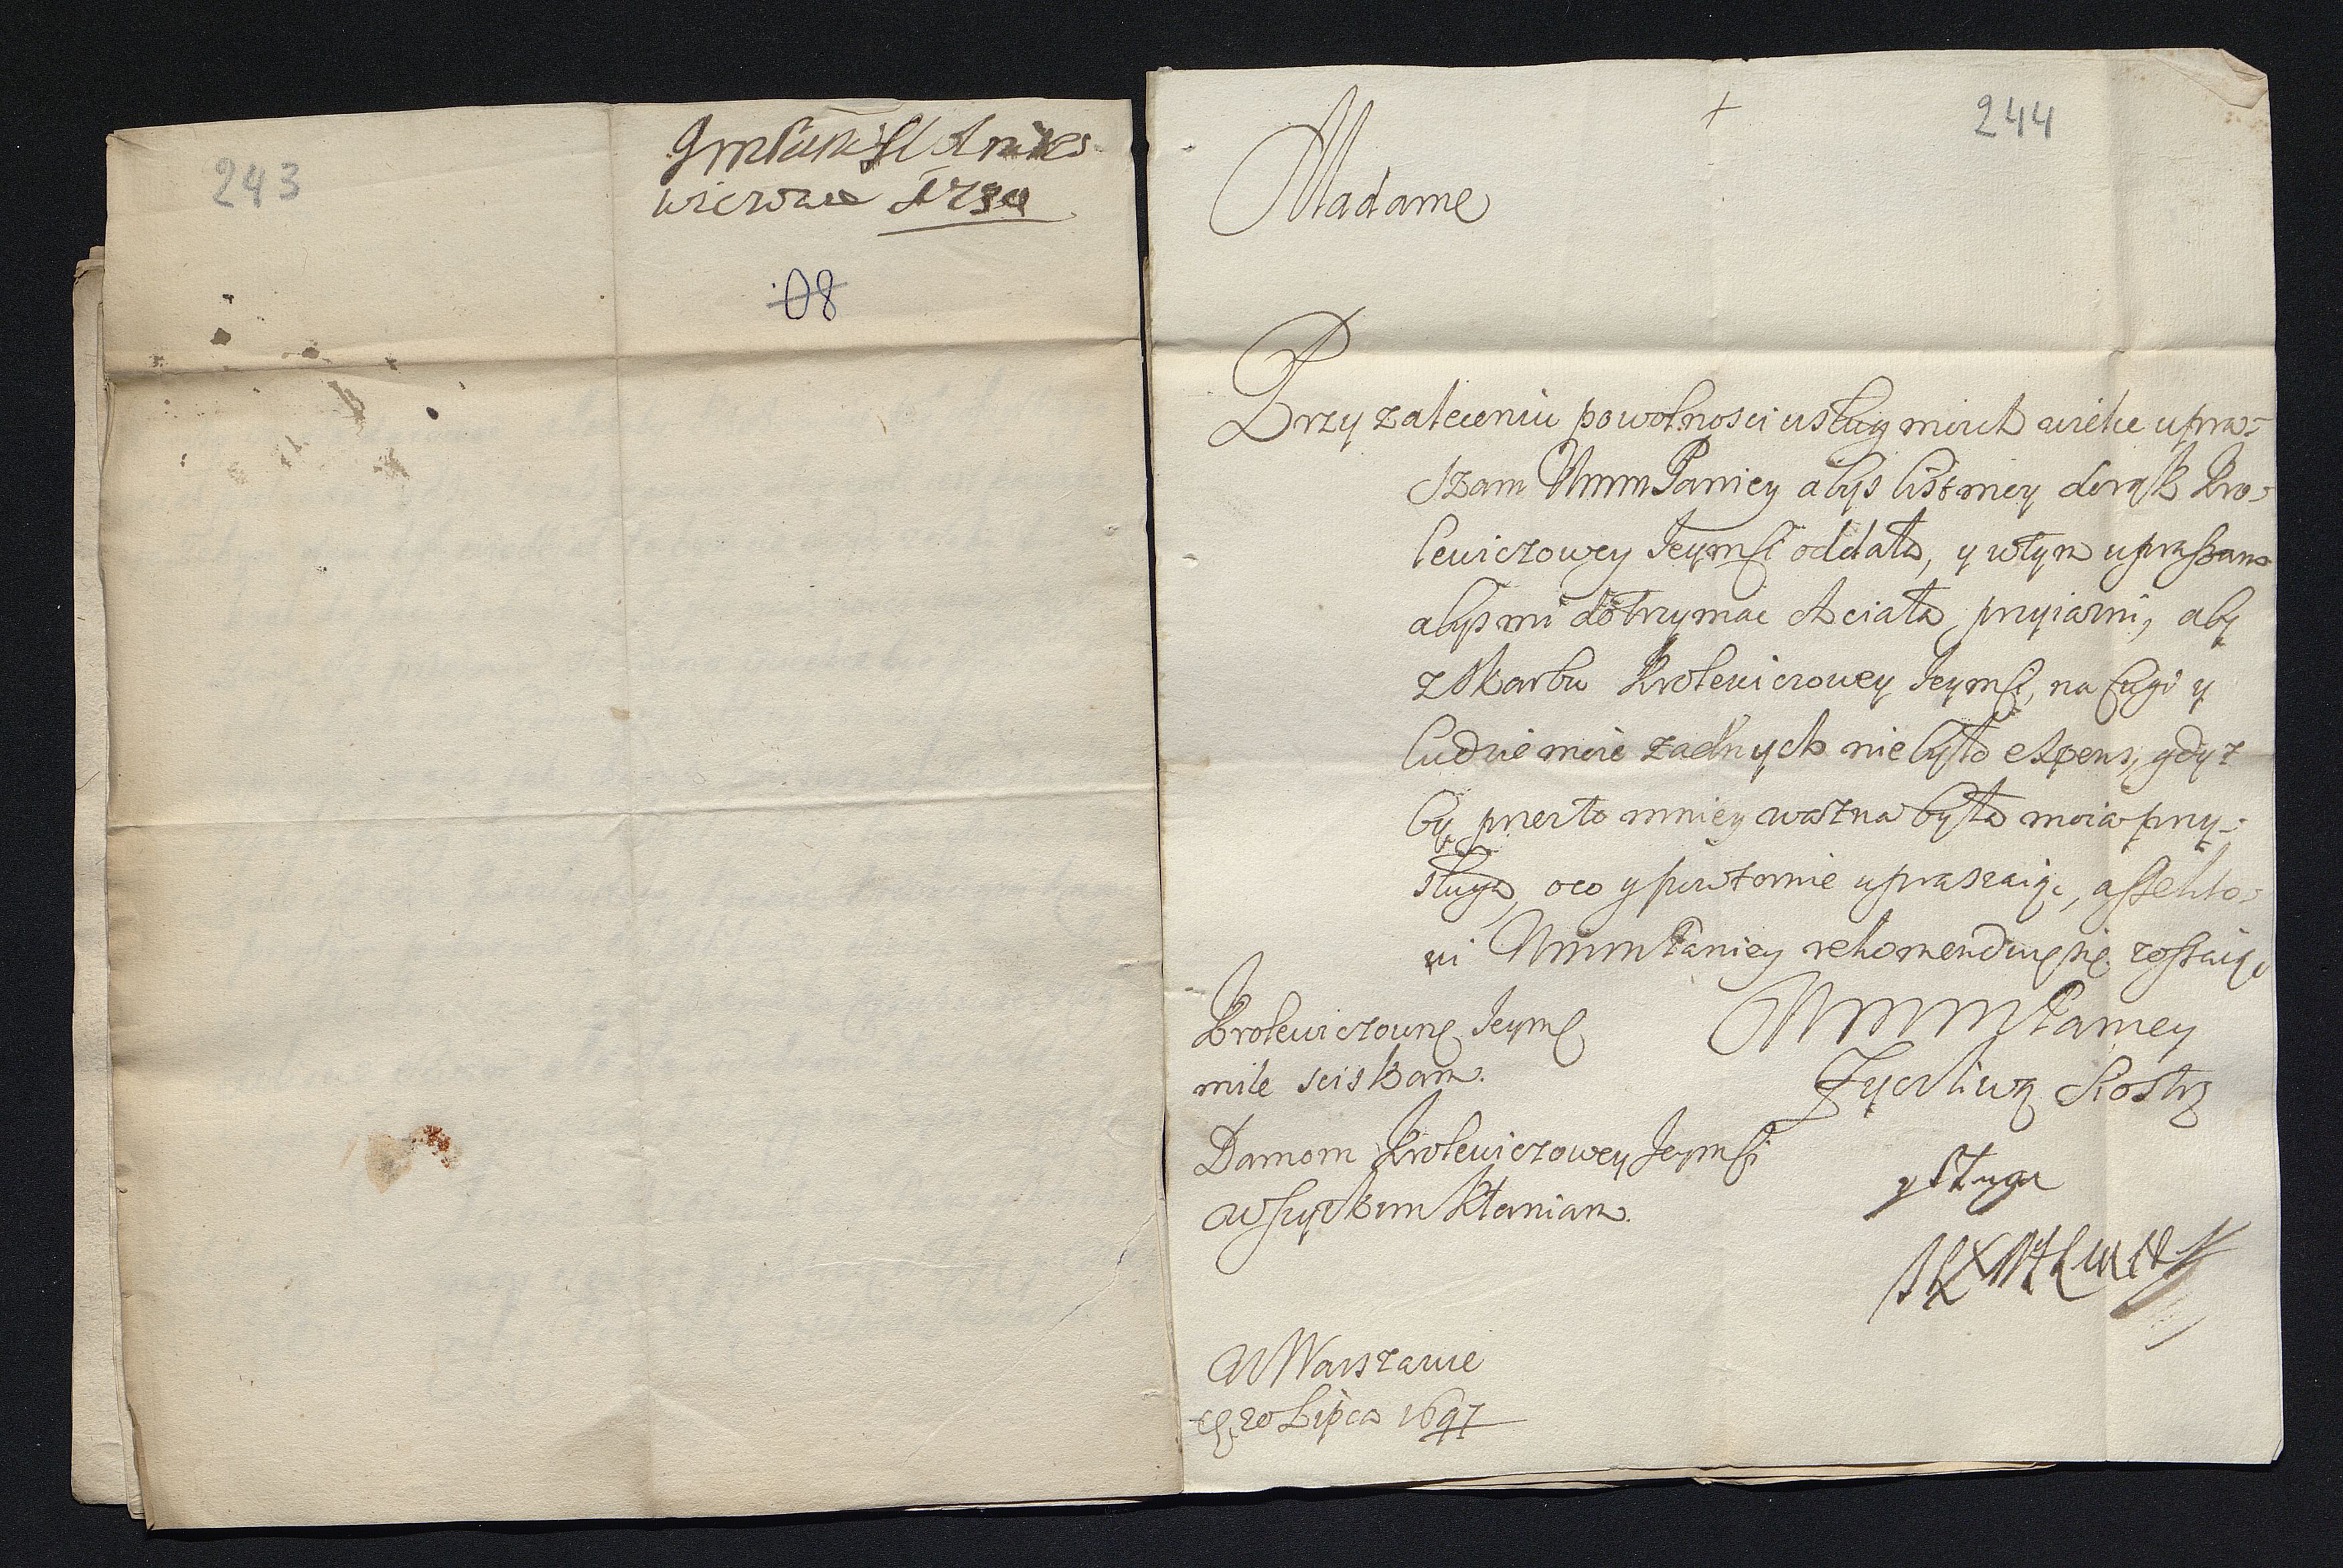 243
wiczowa
08
244
+
Madame
Przy zaleceniu powolnosci usług moich wielce upra-
szam WmmPaniey abys list moy do rąk Kro-
lewiczowey Jeymsci oddała, y w tym upraszam
abys mi dotrzymac chciała przyiazni, aby
z Skarbu Krolewiczowey Jeymsci, na sługi y
ludzie moie zadnych nie było expens, gdyz
by przez to mniey wazna była moia przy-
sługa, o co y powtornie upraszaiąc, affekto-
wi WmmPaniey rekomenduię się zostaiąc
WmmPaniey
Zyczliwą Siostrą
y sługa
Krolewiczownę Jeymę
mile sciskam.
Damom Krolewiczowey Jeymsci
wszyzkim kłaniam.
W Warszawie
20 Lipca 1697